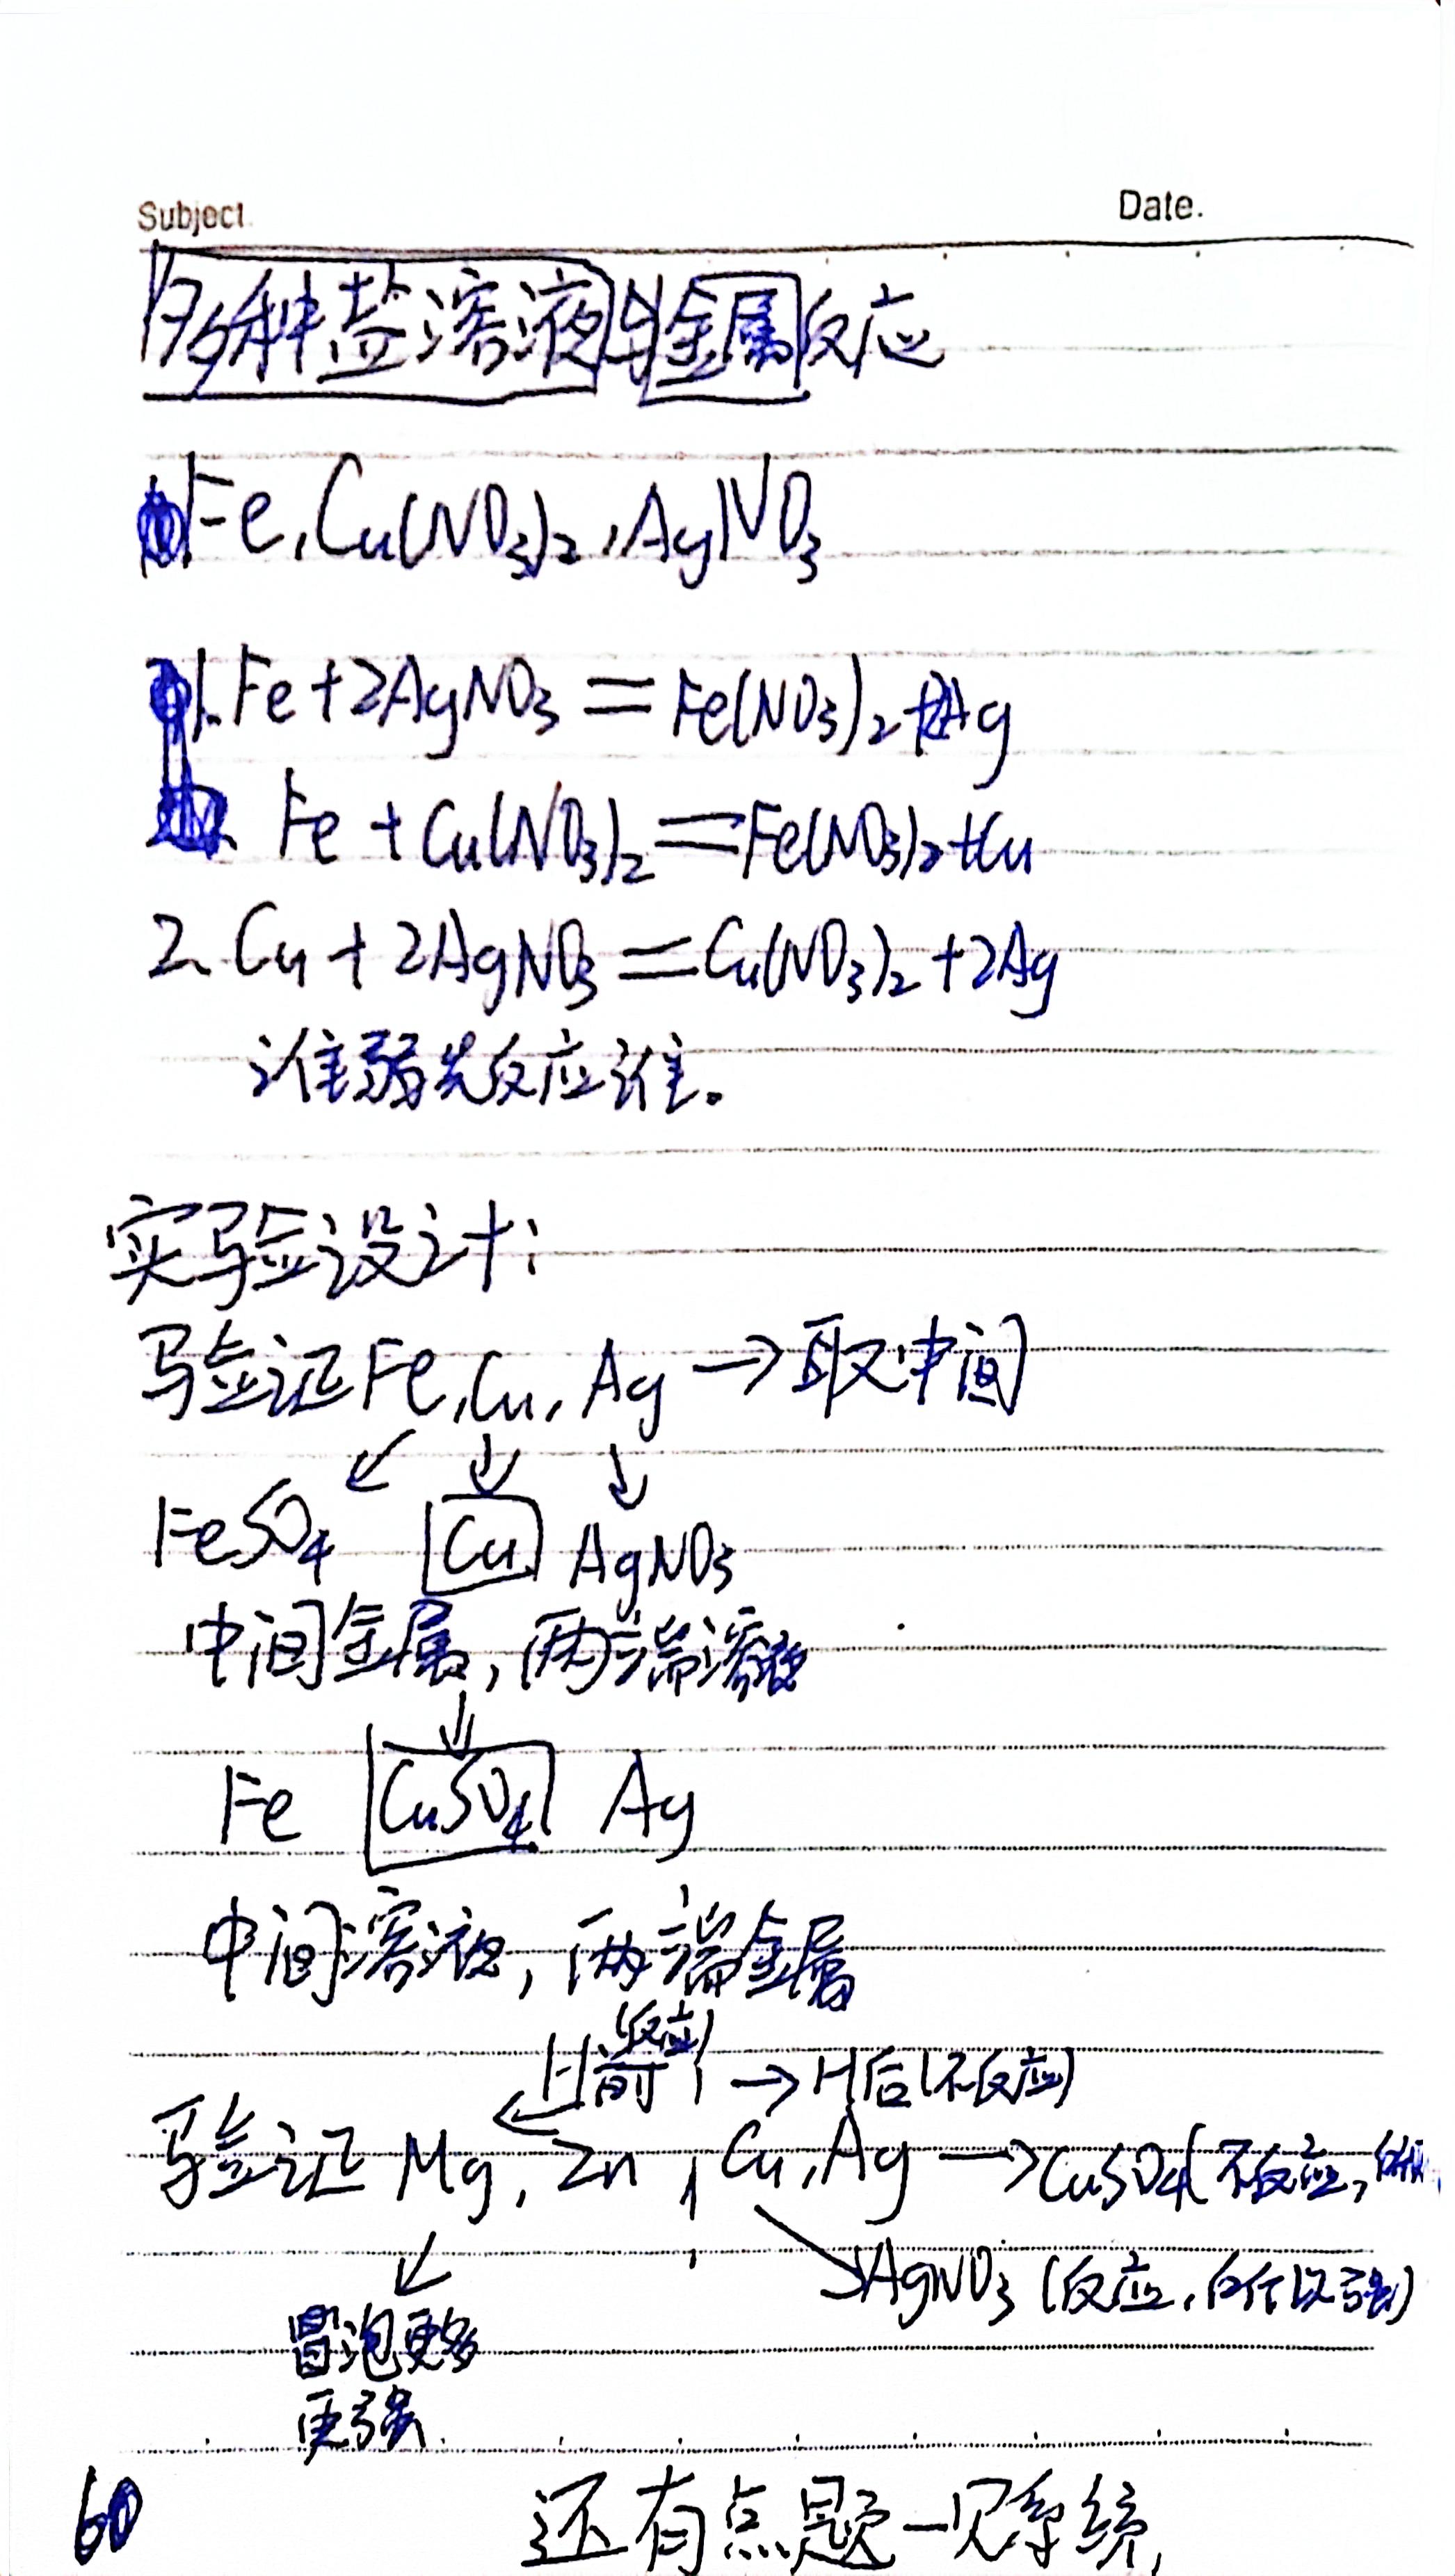 Subject
Date.
多种盐溶液与金属反应
Fe,Cu(NO₃)₂,AgNO₃
1. Fe+2AgNO₃=Fe(NO₃)₂+2Ag
Fe+Cu(NO₃)₂=Fe(NO₃)₂+Cu
2. Cu+2AgNO₃=Cu(NO₃)₂+2Ag
谁弱先反应谁。
实验设计:
验证Fe,Cu,Ag→取中间
↙ ↓ ↓
FeSO₄ Cu AgNO₃
中间金属,两端溶液
↓
Fe CuSO₄ Ag
中间溶液,两端金属
(反应)
←H前 →H后(不反应)
验证Mg,Zn Cu,Ag→CuSO₄(不反应,
↙ ↘AgNO₃(反应,
冒泡更多
更强
60 还有点题一见系统,